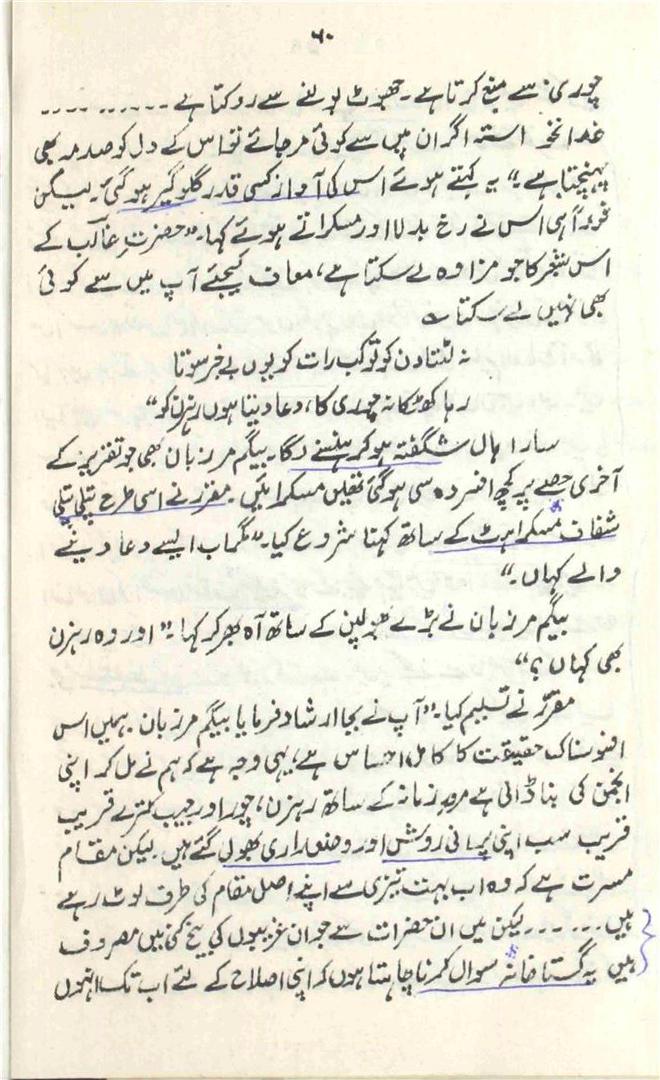 ۶۰
چوری سے منع کرتا ہے۔ جھوٹ بولنے سے روکتا ہے ۔۔۔۔۔۔۔۔۔۔
خدانخواستہ اگر ان میں سے کوئی مر جائے تو اس کے دل کو صدمہ بھی
پہنچتا ہے۔“ یہ کہتے ہوئے اس کی آواز کسی قدر گلوگیر ہو گئی۔ لیکن
فوراً ہی اس نے رخ بدلا اور مسکراتے ہوئے کہا۔ ”حضرت غالب کے
اس شعر کا جو مزا وہ لے سکتا ہے، معاف کیجئے آپ میں سے کوئی
بھی نہیں لے سکتا ؎
نہ لٹتا دن کو تو کب رات کو یوں بے خبر سوتا
رہا کھٹکا نہ چوری کا، دعا دیتا ہوں رہزن کو“
سارا ہال شگفتہ ہو کر ہنسنے لگا۔ بیگم مرزبان بھی جو تقریر کے
آخری حصے پر کچھ افسردہ سی ہو گئی تھیں مسکرائیں۔ مقرر نے اسی طرح پتلی پتلی
شفاف مسکراہٹ کے ساتھ کہنا شروع کیا۔ ”مگر اب ایسے دعا دینے
والے کہاں۔“
بیگم مرزبان نے بڑے بھولپن کے ساتھ آہ بھر کر کہا۔ ”اور وہ رہزن
بھی کہاں؟“
مقرر نے تسلیم کیا۔ ”آپ نے بجا ارشاد فرمایا بیگم مرزبان۔ ہمیں اس
افسوسناک حقیقت کا کامل احساس ہے، یہی وجہ ہے کہ ہم نے مل کر اپنی
انجمن کی بنا ڈالی ہے مرورِ زمانہ کے ساتھ رہزن، چور اور جیب کترے قریب
قریب سب اپنی پرانی روش اور وضعداری بھول گئے ہیں۔ لیکن مقام
مسرت ہے کہ وہ اب بہت تیزی سے اپنے اصل مقام کی طرف لوٹ رہے
ہیں ۔۔۔۔۔ لیکن میں ان حضرات سے جو ان غریبوں کی بیخ کنی میں مصروف
ہیں یہ گستاخانہ سوال کرنا چاہتا ہوں کہ اپنی اصلاح کے لئے اب تک انہوں